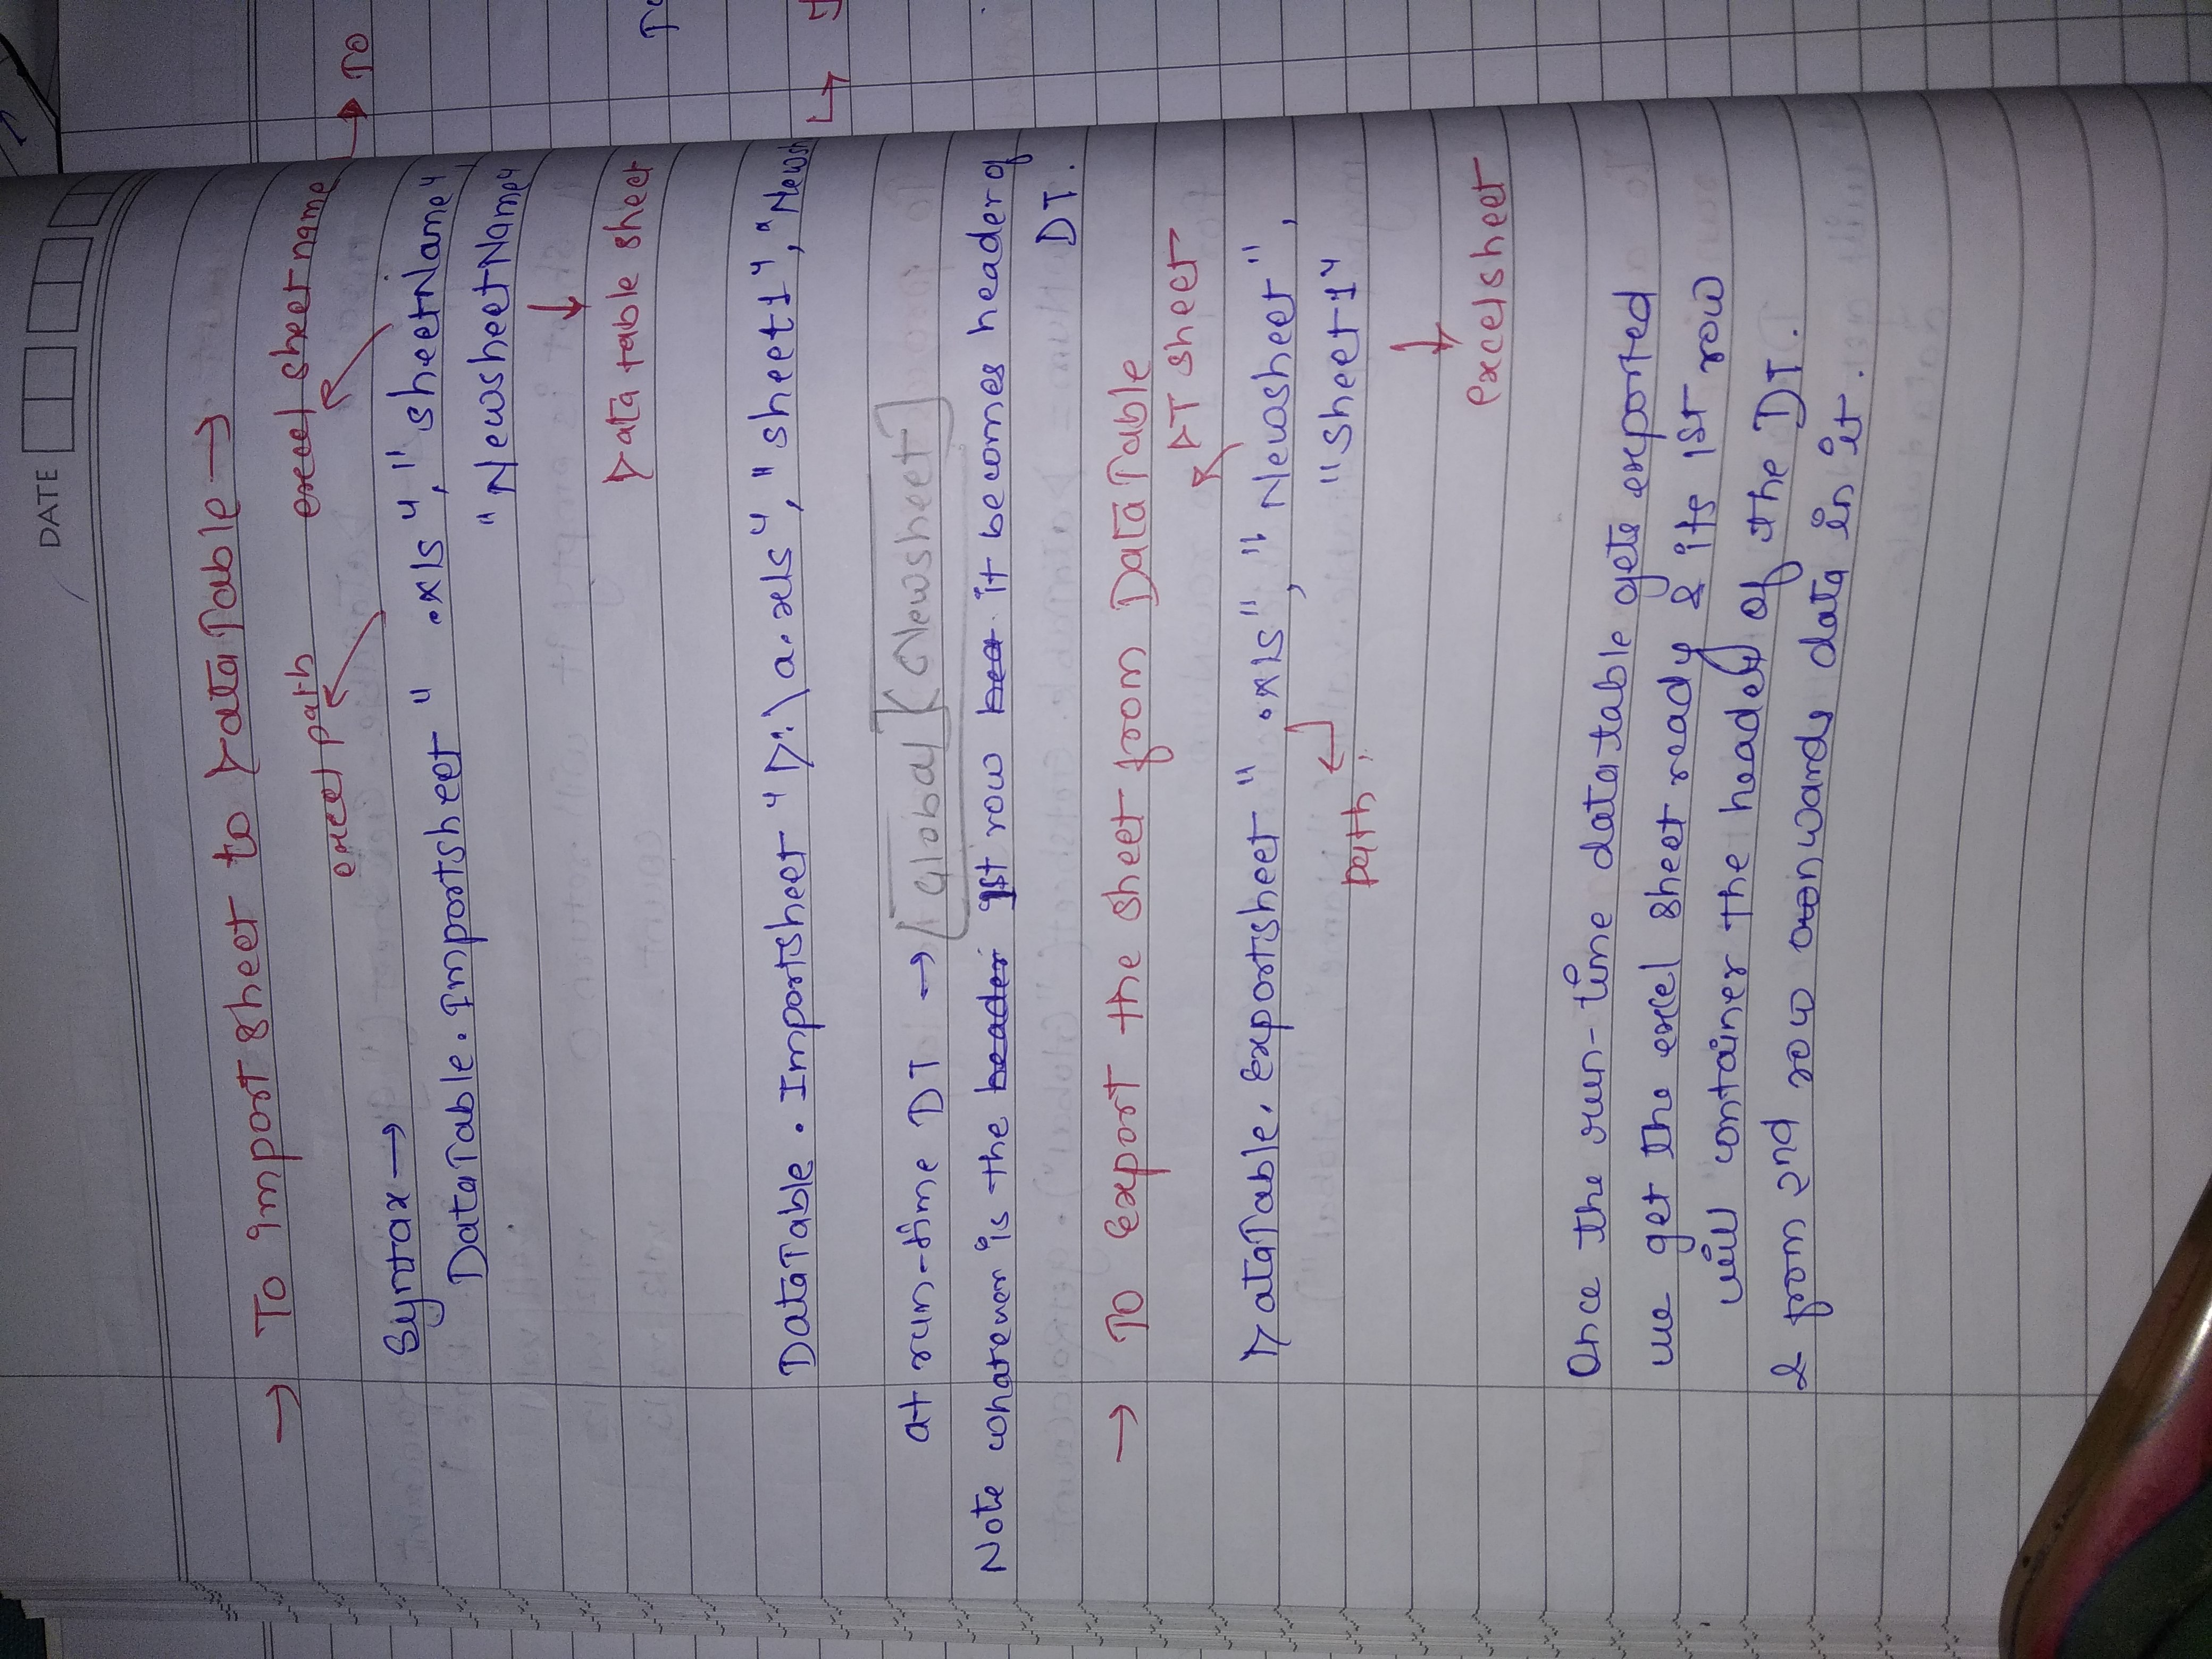 DATE
→ To import sheet to DataTable →
excel path excel sheet name
Syntax →
DataTable.Importsheet " .xls", "sheetName"
"NewsheetName"
↓
Data table sheet
DataTable . Importsheet "D:\a.xls", "sheet1", "Newsh
at run-time DT → Global Newsheet
Note whatever is the header 1st row it becomes header of
DT.
→ To Export the sheet from DataTable
DT sheet
DataTable. Exportsheet " .xls", "Newsheet",
"Sheet1"
path.
↓
excelsheet
Once the run-time data table gets exported
we get the excel sheet ready & its 1st row
will container the header of the DT.
& from 2nd row onwards data in it.
→ TO